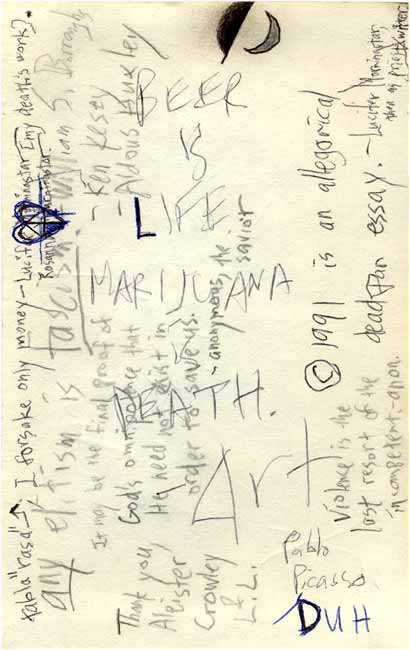 BEER
IS
LIFE
MARIJUANA
IS
DEATH.
Art
Pablo
Picasso
DUH
"rasa" I forsake only money – Lucifer Morningstar [my death's work].
Rosanna Morningstar
any elitism is fascism. – William S. Burroughs
– Ken Kesey
– Aldous Huxley
It may be the final proof of
God's omnipotence that
He need not exist in
order to save us.
– anonymous, the
savior
Thank you
Aleister
Crowley
&
L.L.
© 1991 is an allegorical
deadpan essay. – Lucifer Morningstar,
Violence is the
last resort of the
incompetent. – anon.